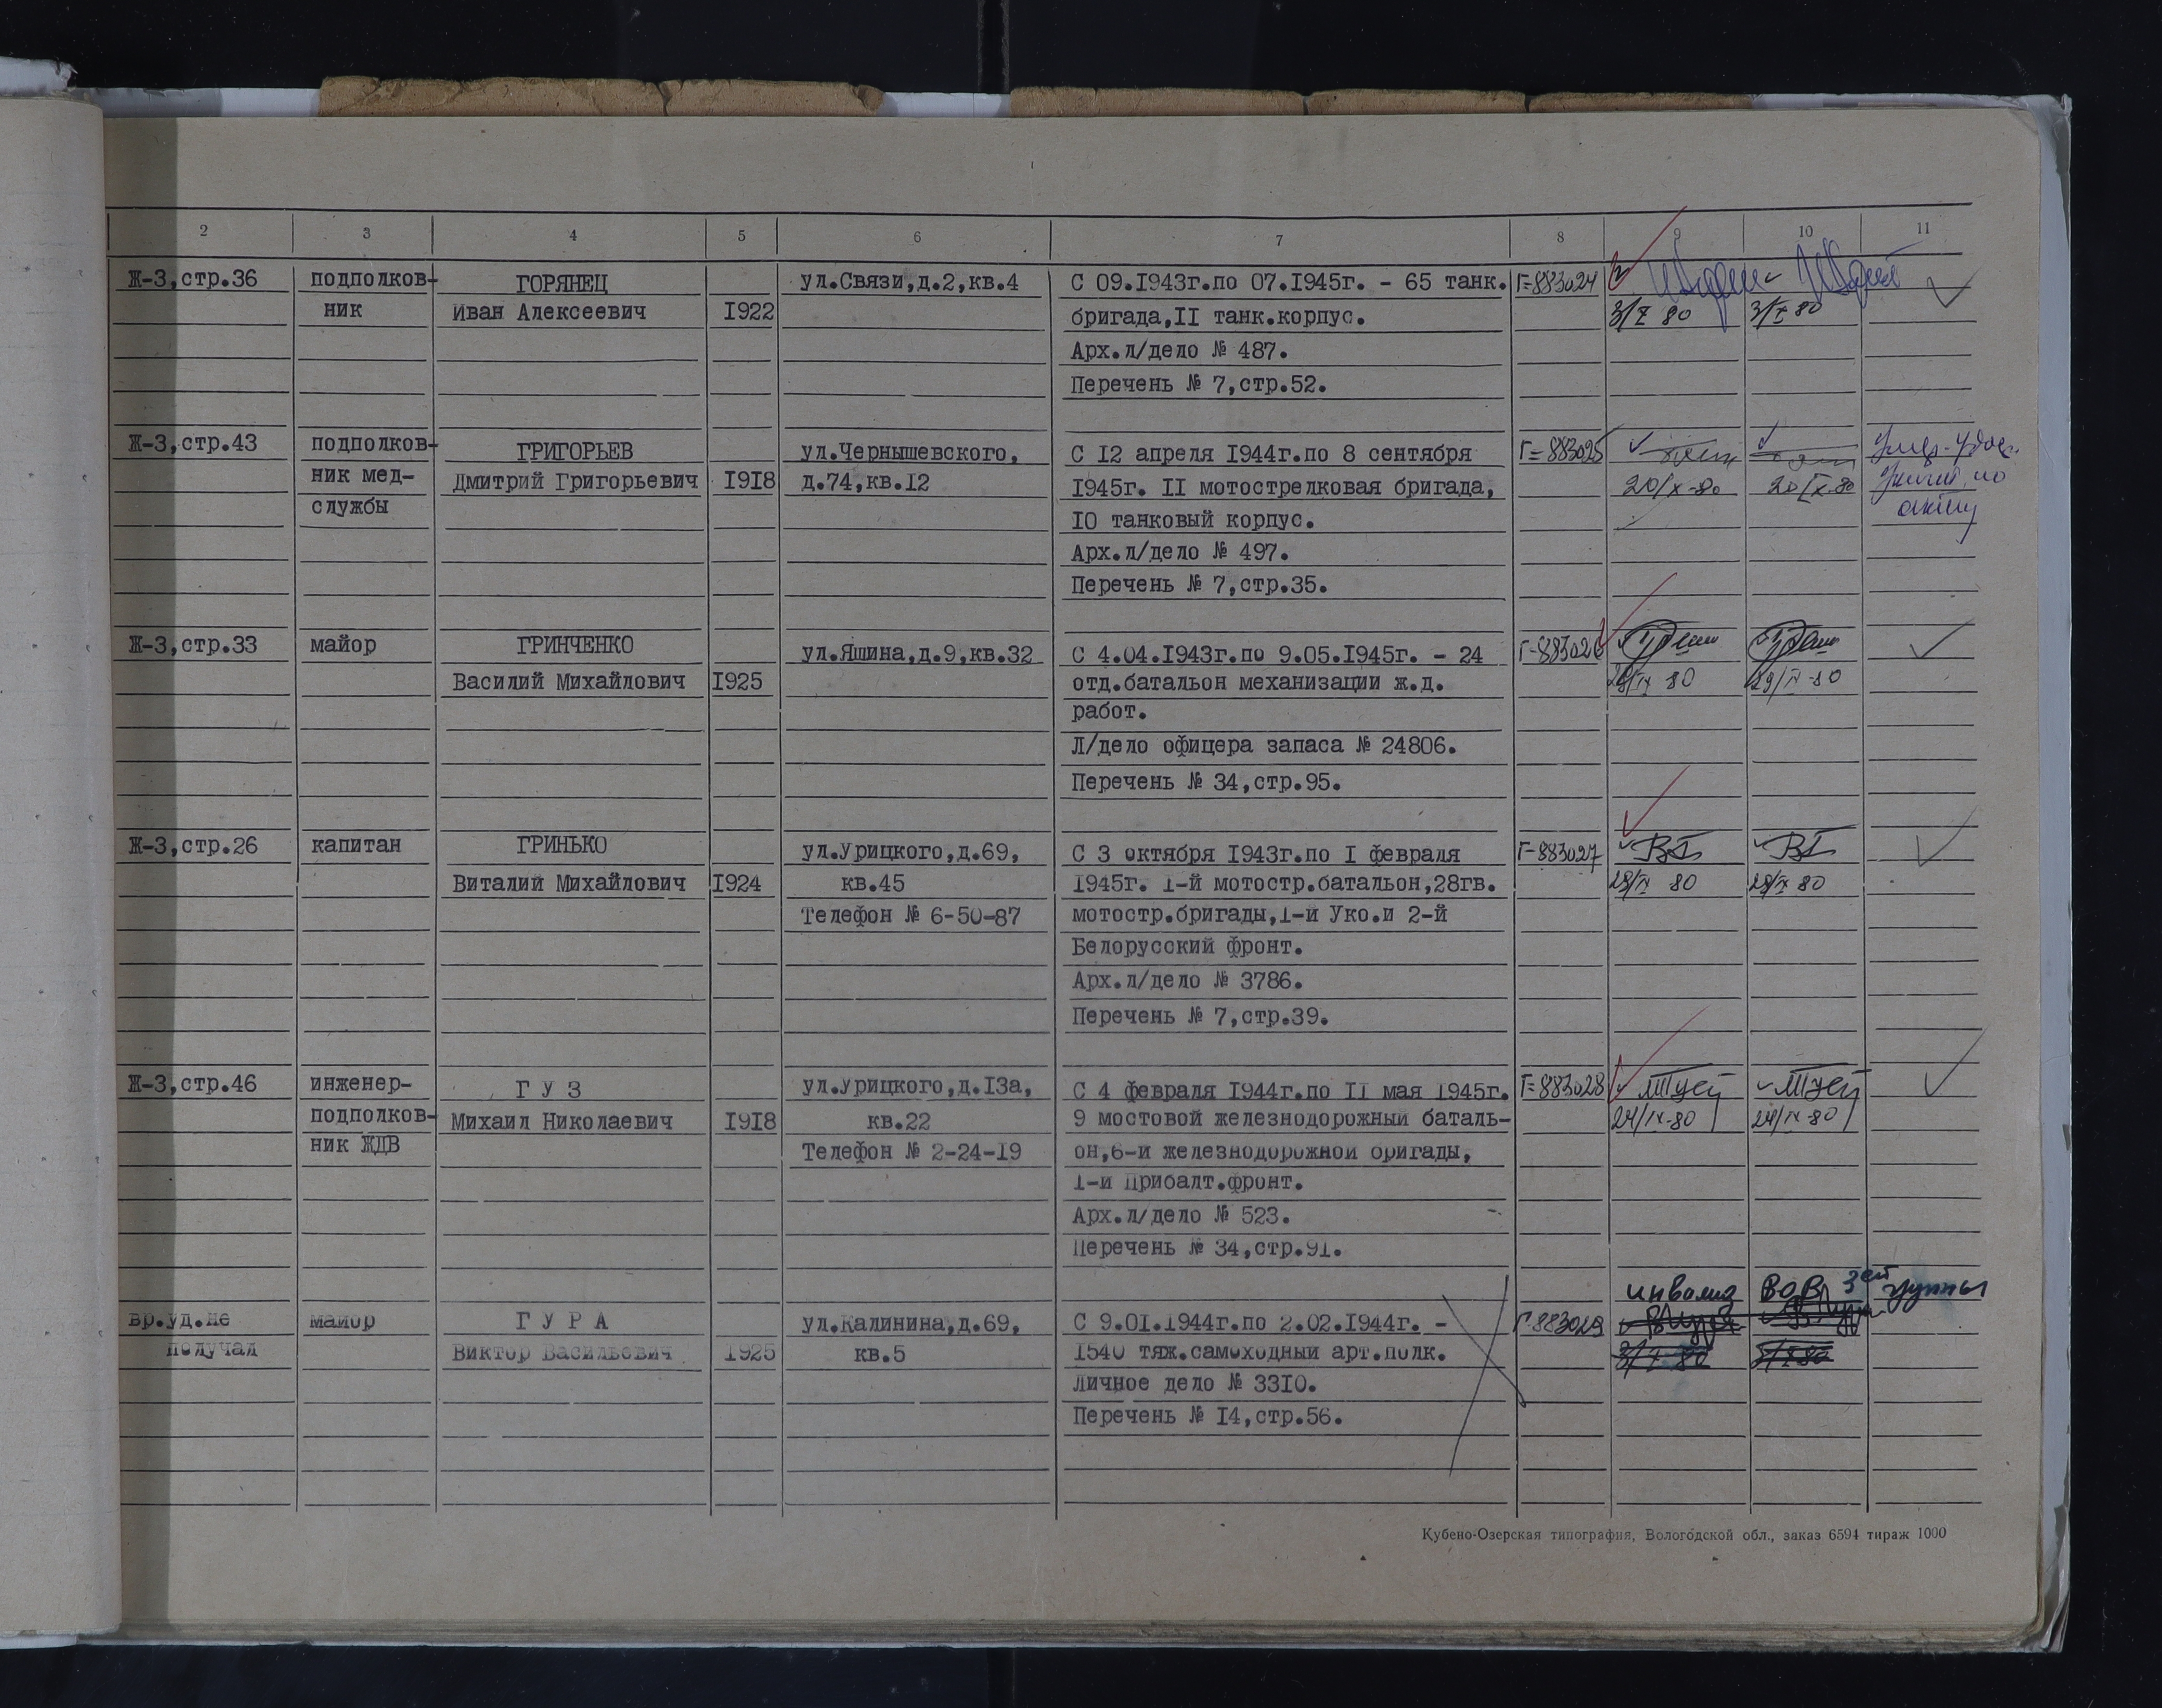 2 3 4 5 6 7 8 9 10 11
Ж-3,стр.36 подполков- ГОРЯНЕЦ ул.Связи,д.2,кв.4 С 09.1943г.по 07.1945г. - 65 танк. Г-883024
ник Иван Алексеевич 1922 бригада,II танк.корпус. 3/X 80 3/X 80
Арх.л/дело № 487.
Перечень № 7,стр.52.
Ж-3,стр.43 подполков- ГРИГОРЬЕВ ул.Чернышевского, С 12 апреля 1944г.по 8 сентября Г-883025
ник мед- Дмитрий Григорьевич 1918 д.74,кв.12 1945г. II мотострелковая бригада, 20/X-80 20/X-80
службы 10 танковый корпус. акту
Арх.л/дело № 497.
Перечень № 7,стр.35.
Ж-3,стр.33 майор ГРИНЧЕНКО ул.Яшина,д.9,кв.32 С 4.04.1943г.по 9.05.1945г. - 24 Г-883026
Василий Михайлович 1925 отд.батальон механизации ж.д. 29/IX 80 29/IX-80
работ.
Л/дело офицера запаса № 24806.
Перечень № 34,стр.95.
Ж-3,стр.26 капитан ГРИНЬКО ул.Урицкого,д.69, С 3 октября 1943г.по I февраля Г-883027
Виталий Михайлович 1924 кв.45 1945г. 1-й мотостр.батальон,28гв. 29/IX 80 29/IX 80
Телефон № 6-50-87 мотостр.бригады,1-й Укр.и 2-й
Белорусский фронт.
Арх.л/дело № 3786.
Перечень № 7,стр.39.
Ж-3,стр.46 инженер- Г У З ул.Урицкого,д.13а, С 4 февраля 1944г.по II мая 1945г. Г-883028
подполков- Михаил Николаевич 1918 кв.22 9 мостовой железнодорожный баталь- 24/IX-80 24/IX-80
ник ЖДВ Телефон № 2-24-19 он,6-й железнодорожной бригады,
1-й Прибалт.фронт.
Арх.л/дело № 523.
Перечень № 34,стр.91.
инвалид ВОВ 3ей группы
вр.уд.не майор Г У Р А ул.Калинина,д.69, С 9.01.1944г.по 2.02.1944г. - Г-883029
получал Виктор Васильевич 1925 кв.5 1540 тяж.самоходный арт.полк. 3/X 80 3/X 80
Личное дело № 3310.
Перечень № 14,стр.56.
Кубено-Озерская типография, Вологодской обл., заказ 6594 тираж 1000